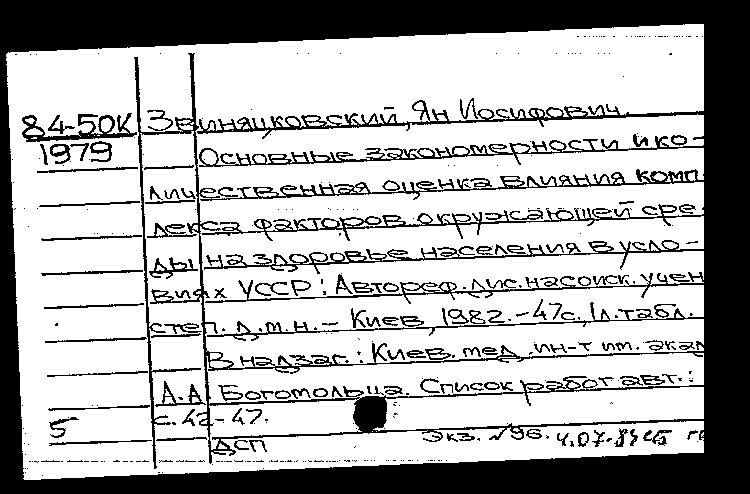 84-50К Звиняцковский, Ян Иосифович.
1979 Основные закономерности и ко-
личественная оценка влияния комп
лекса факторов окружающей сре
ды на здоровье населения в усло-
виях УССР : Автореф. дис. на соиск. учен
степ. д.м.н. – Киев, 1982. – 47с., 1л. табл.
В надзаг.: Киев. мед. ин-т им. акад
А.А. Богомольца. Список работ авт.:
5 с. 42-47.
ДСП экз. №96. 4.07.84